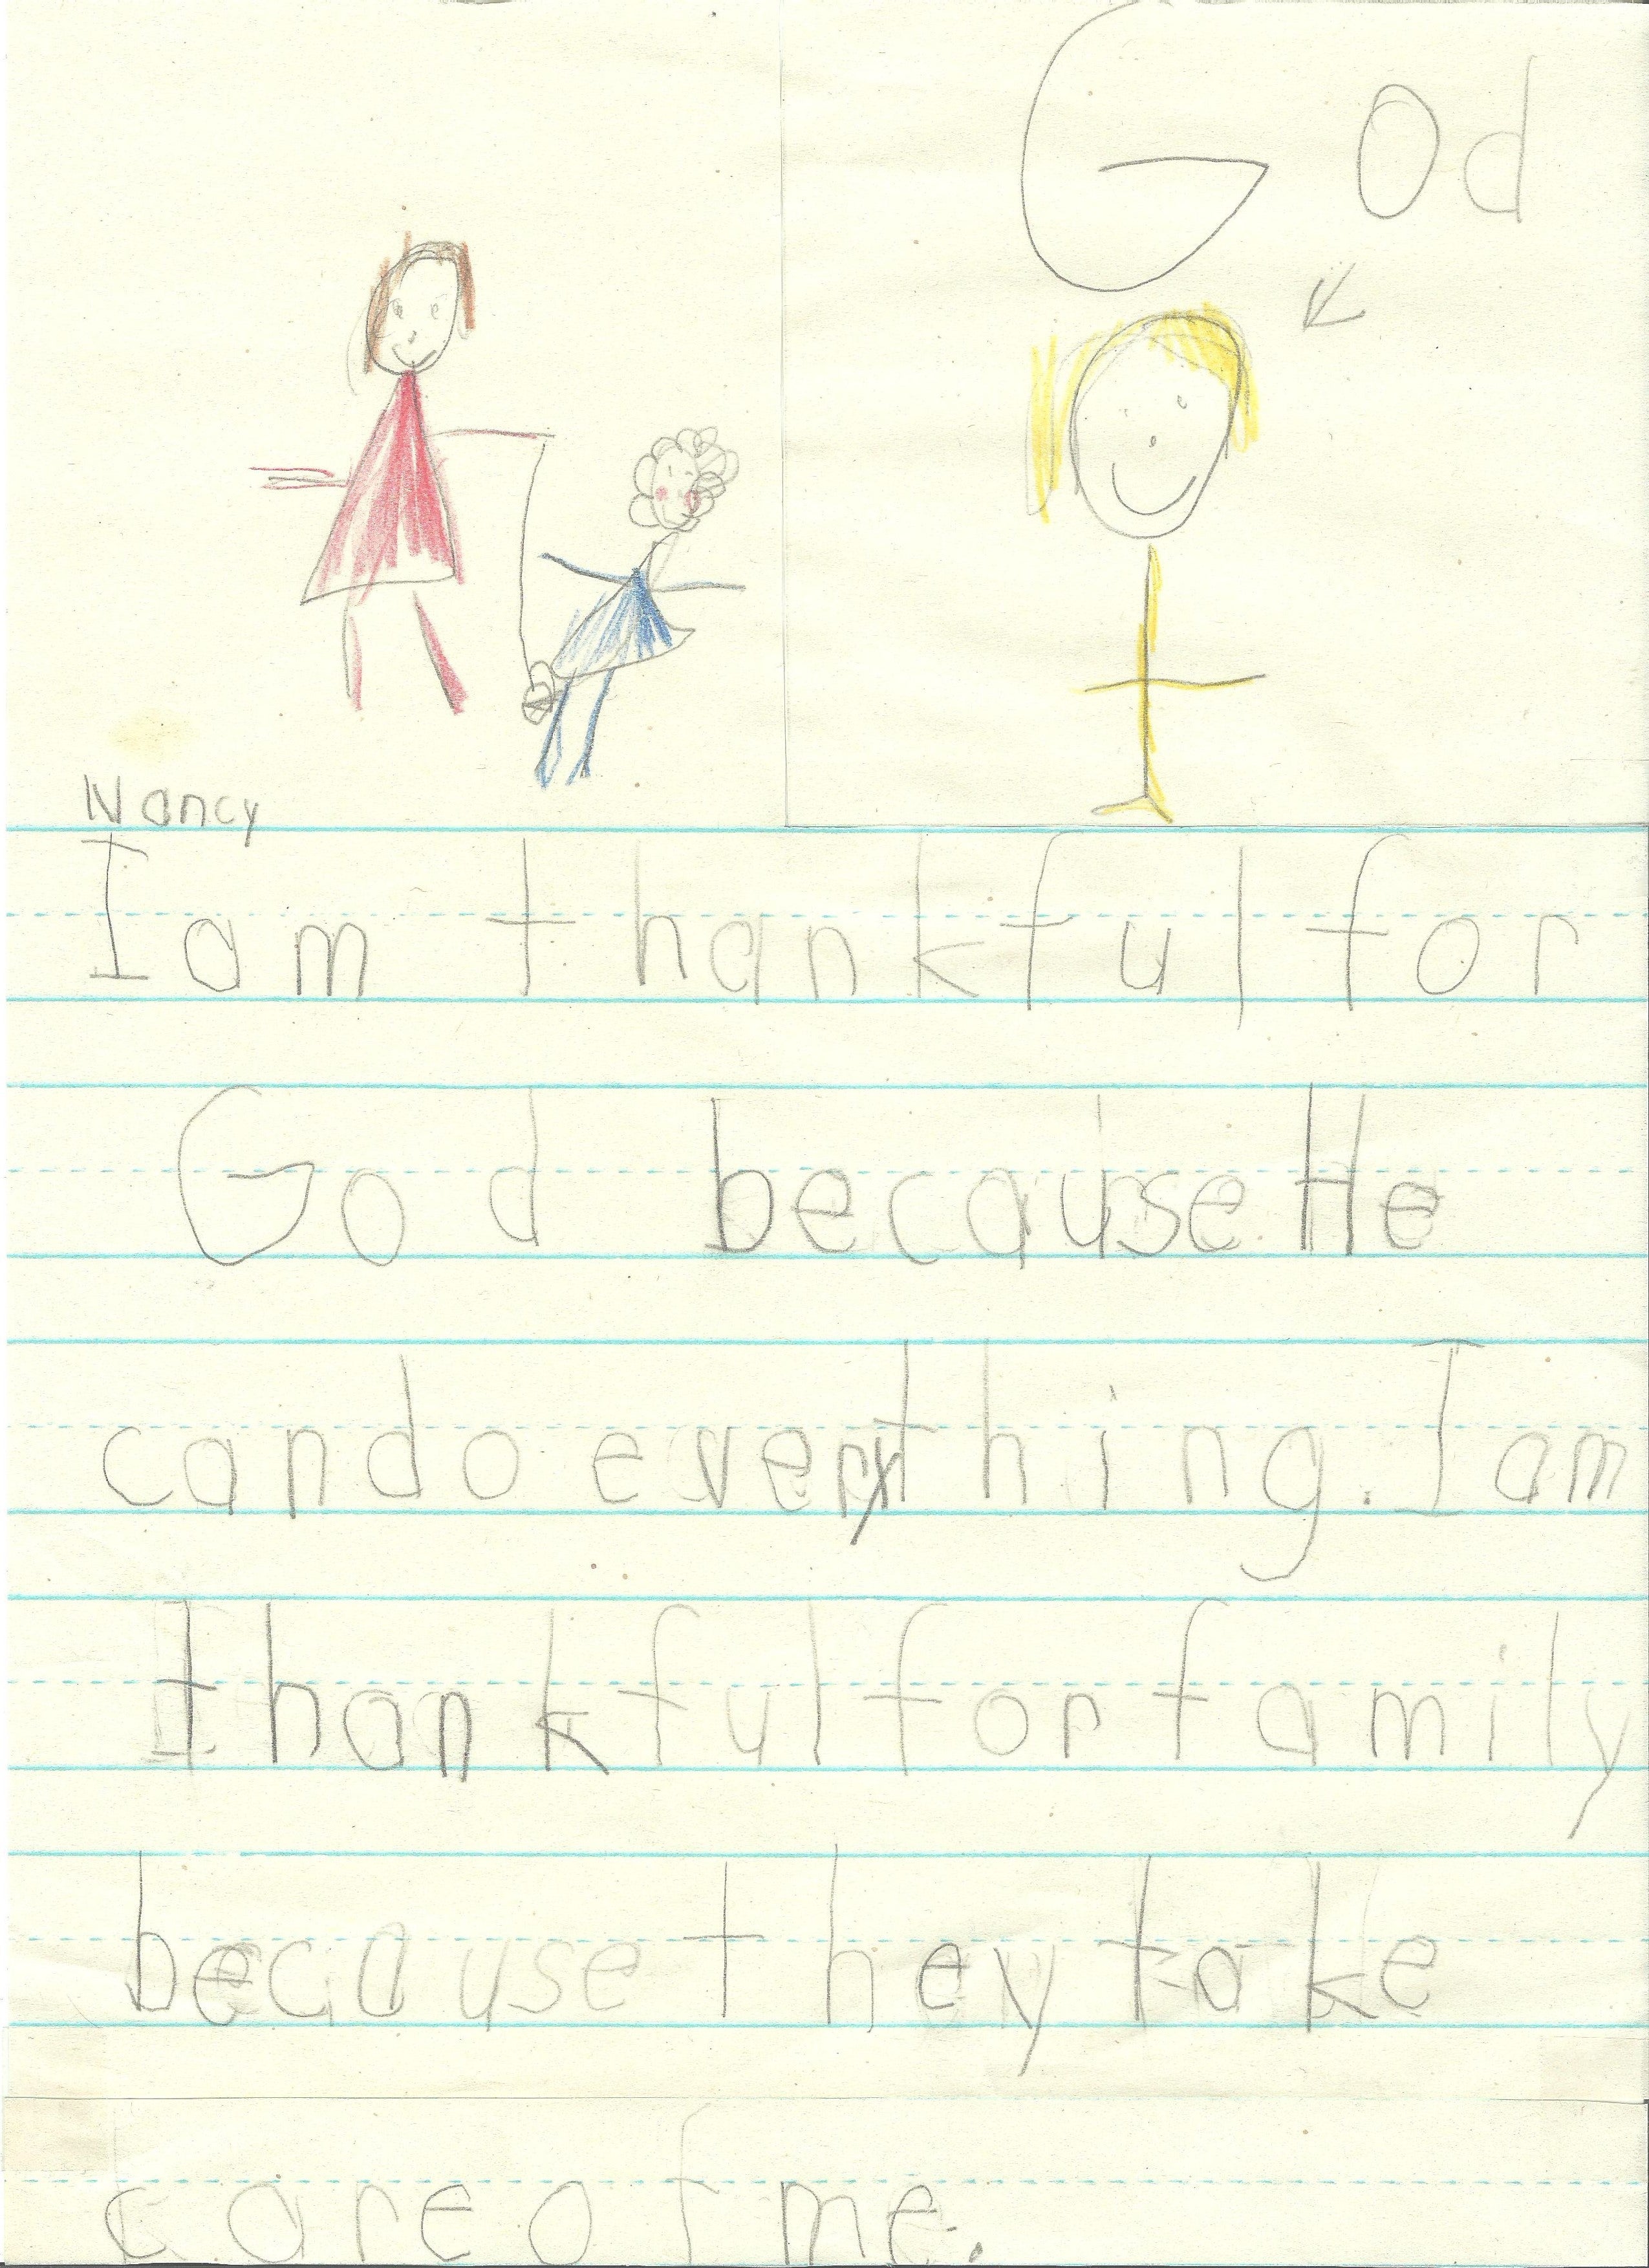 God
Nancy
I am thankful for
God because He
can do everything. I am
thankful for family
because they take
care of me.